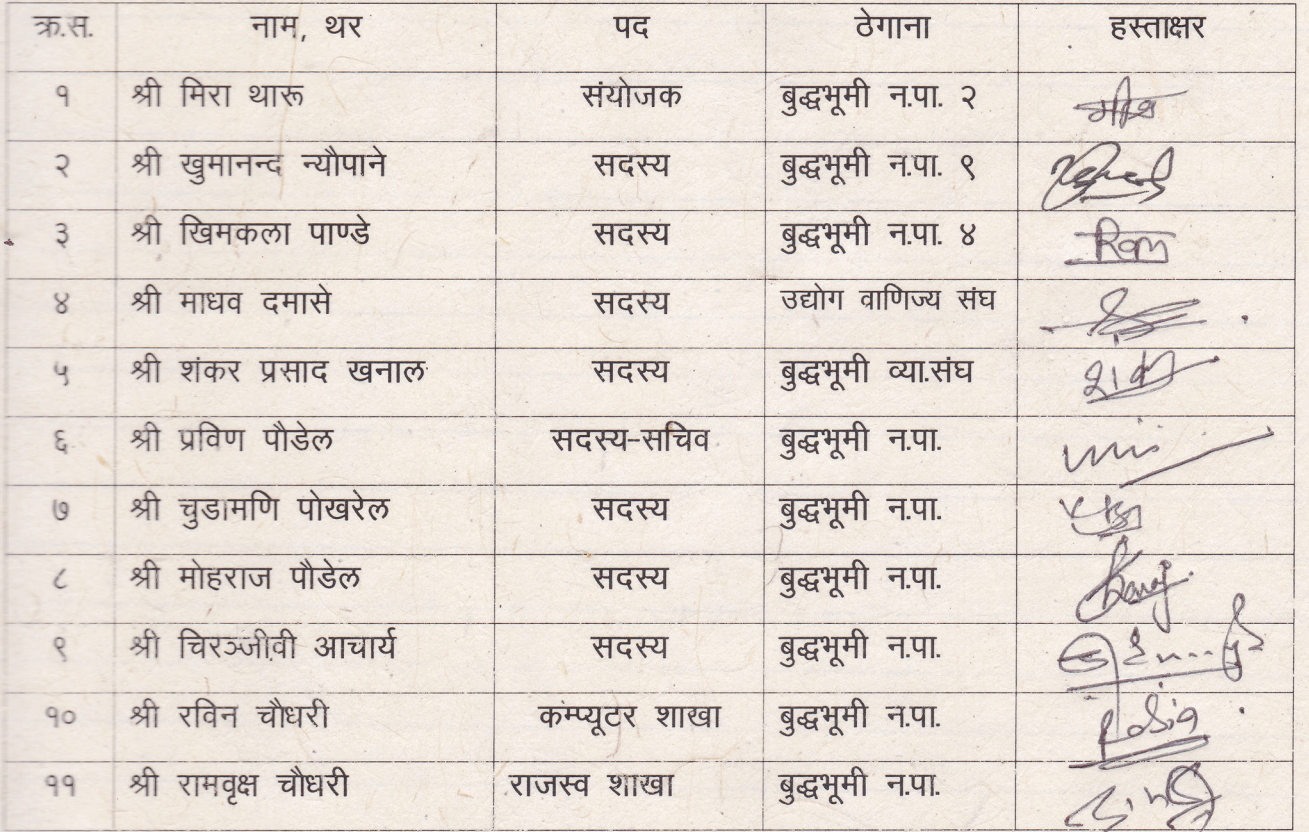 क्र.स. नाम, थर पद ठेगाना हस्ताक्षर
१ श्री मिरा थारू संयोजक बुद्धभूमी न.पा. २
२ श्री खुमानन्द न्यौपाने सदस्य बुद्धभूमी न.पा. ९
३ श्री खिमकला पाण्डे सदस्य बुद्धभूमी न.पा. ४
४ श्री माधव दमासे सदस्य उद्योग वाणिज्य संघ
५ श्री शंकर प्रसाद खनाल सदस्य बुद्धभूमी व्या.संघ
६ श्री प्रविण पौडेल सदस्य-सचिव बुद्धभूमी न.पा.
७ श्री चुडामणि पोखरेल सदस्य बुद्धभूमी न.पा.
८ श्री मोहराज पौडेल सदस्य बुद्धभूमी न.पा.
९ श्री चिरञ्जीवी आचार्य सदस्य बुद्धभूमी न.पा.
१० श्री रविन चौधरी कम्प्यूटर शाखा बुद्धभूमी न.पा.
११ श्री रामवृक्ष चौधरी राजस्व शाखा बुद्धभूमी न.पा.